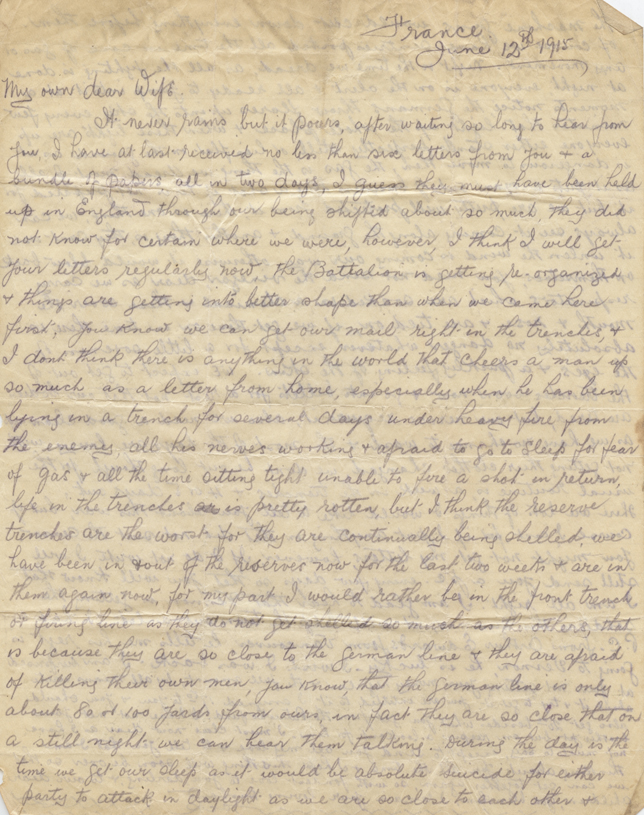 France.
June 12th 1915
My own dear Wife.
It never rains but it pours, after waiting so long to hear from
you, I have at last received no less than six letters from you + a
bundle of papers all in two days, I guess they must have been held
up in England through our being shifted about so much, they did
not know for certain where we were, however, I think I will get
your letters regularly now, the Battalion is getting re-organized
+ things are getting into better shape than when we came here
first, you know we can get our mail right in the trenches, +
I dont think there is anything in the world that cheers a man up
so much as a letter from home, especially when he has been
lying in a trench for several days under heavy fire from
the enemy, all his nerves working + afraid to go to sleep for fear
of gas + all the time sitting tight unable to fire a shot in return,
life in the trenches is pretty rotten, but I think the reserve
trenches are the worst for they are continually being shelled, we
have been in + out of the reserves now for the last two weeks + are in
them again now, for my part I would rather be in the front trench
or firing line as they do not get shelled so much as the others, that
is because they are so close to the german line + they are afraid
of killing their own men, you know, that the german line is only
about 80 or 100 yards from ours, in fact they are so close that on
a still night we can hear them talking. During the day is the
time we get our sleep as it would be absolute suicide for either
party to attack in daylight as we are so close to each other +